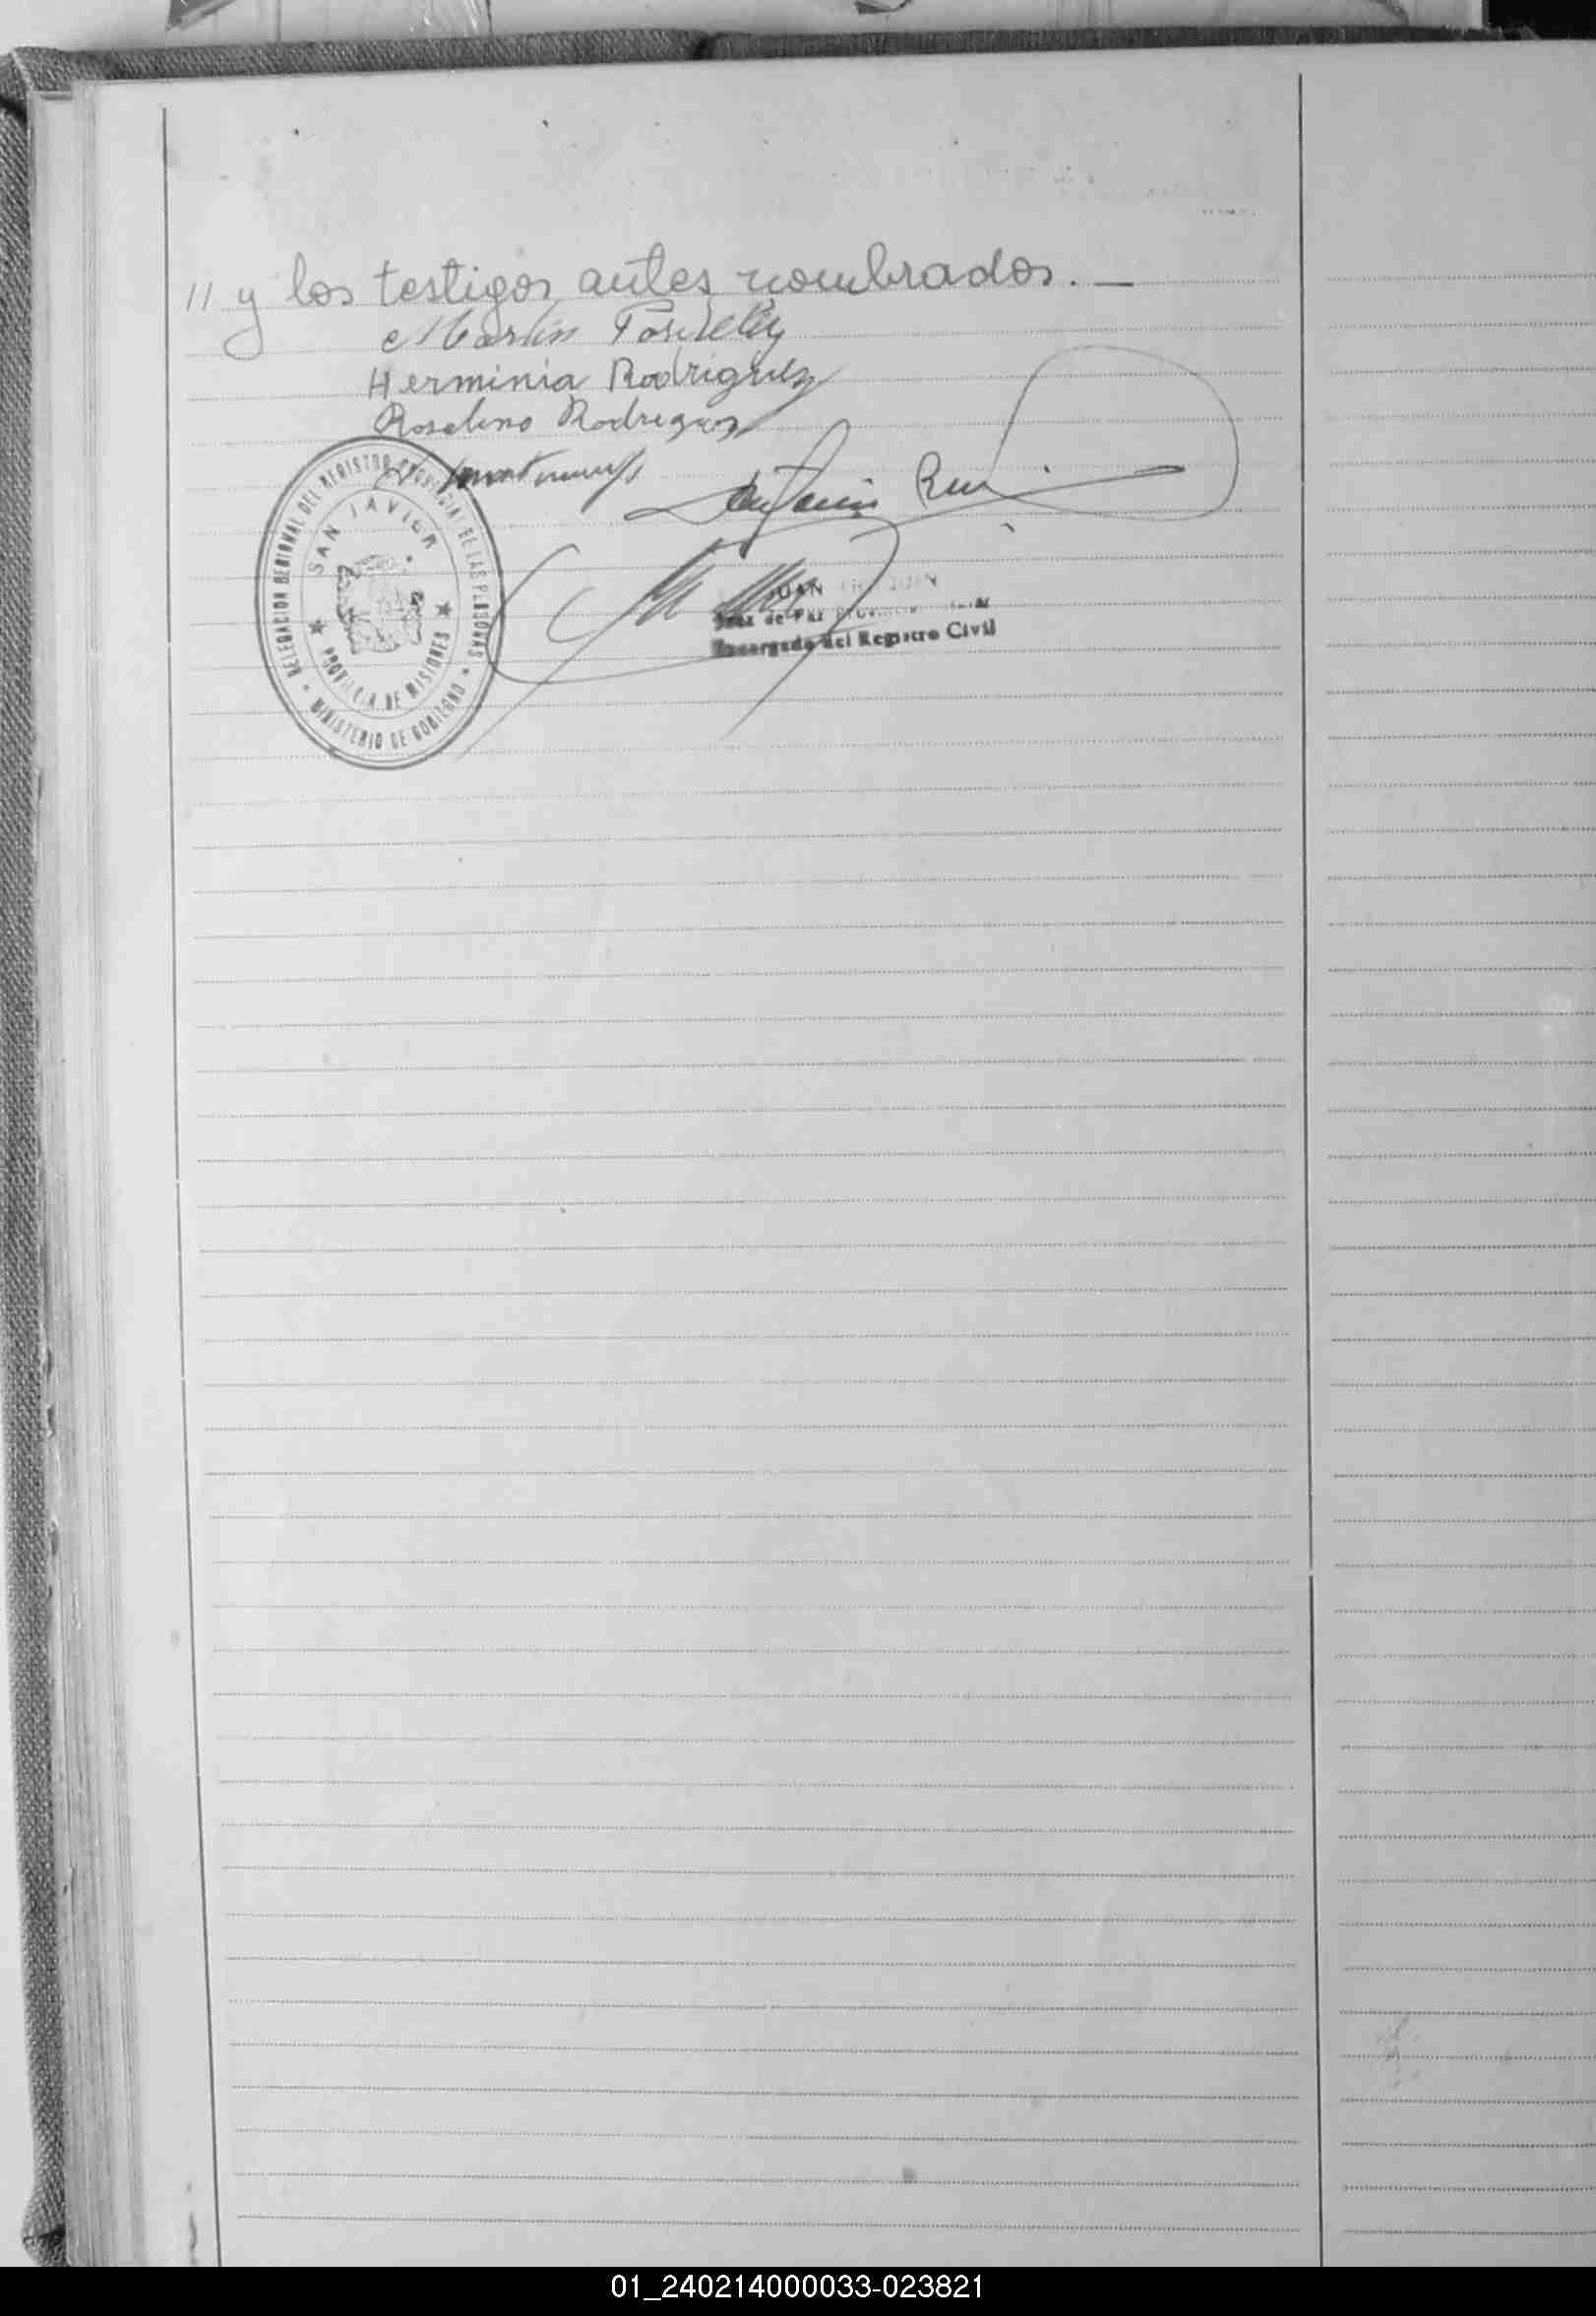 // y los testigos antes nombrados. —
Martin
Herminia Rodriguez
Roselino Rodriguez
Antonio
DELEGACION REGIONAL DEL REGISTRO PROVINCIAL DE LAS PERSONAS
SAN JAVIER
PROVINCIA DE MISIONES
MINISTERIO DE GOBIERNO
JUAN
Juez de Paz
Encargado del Registro Civil
01_240214000033-023821